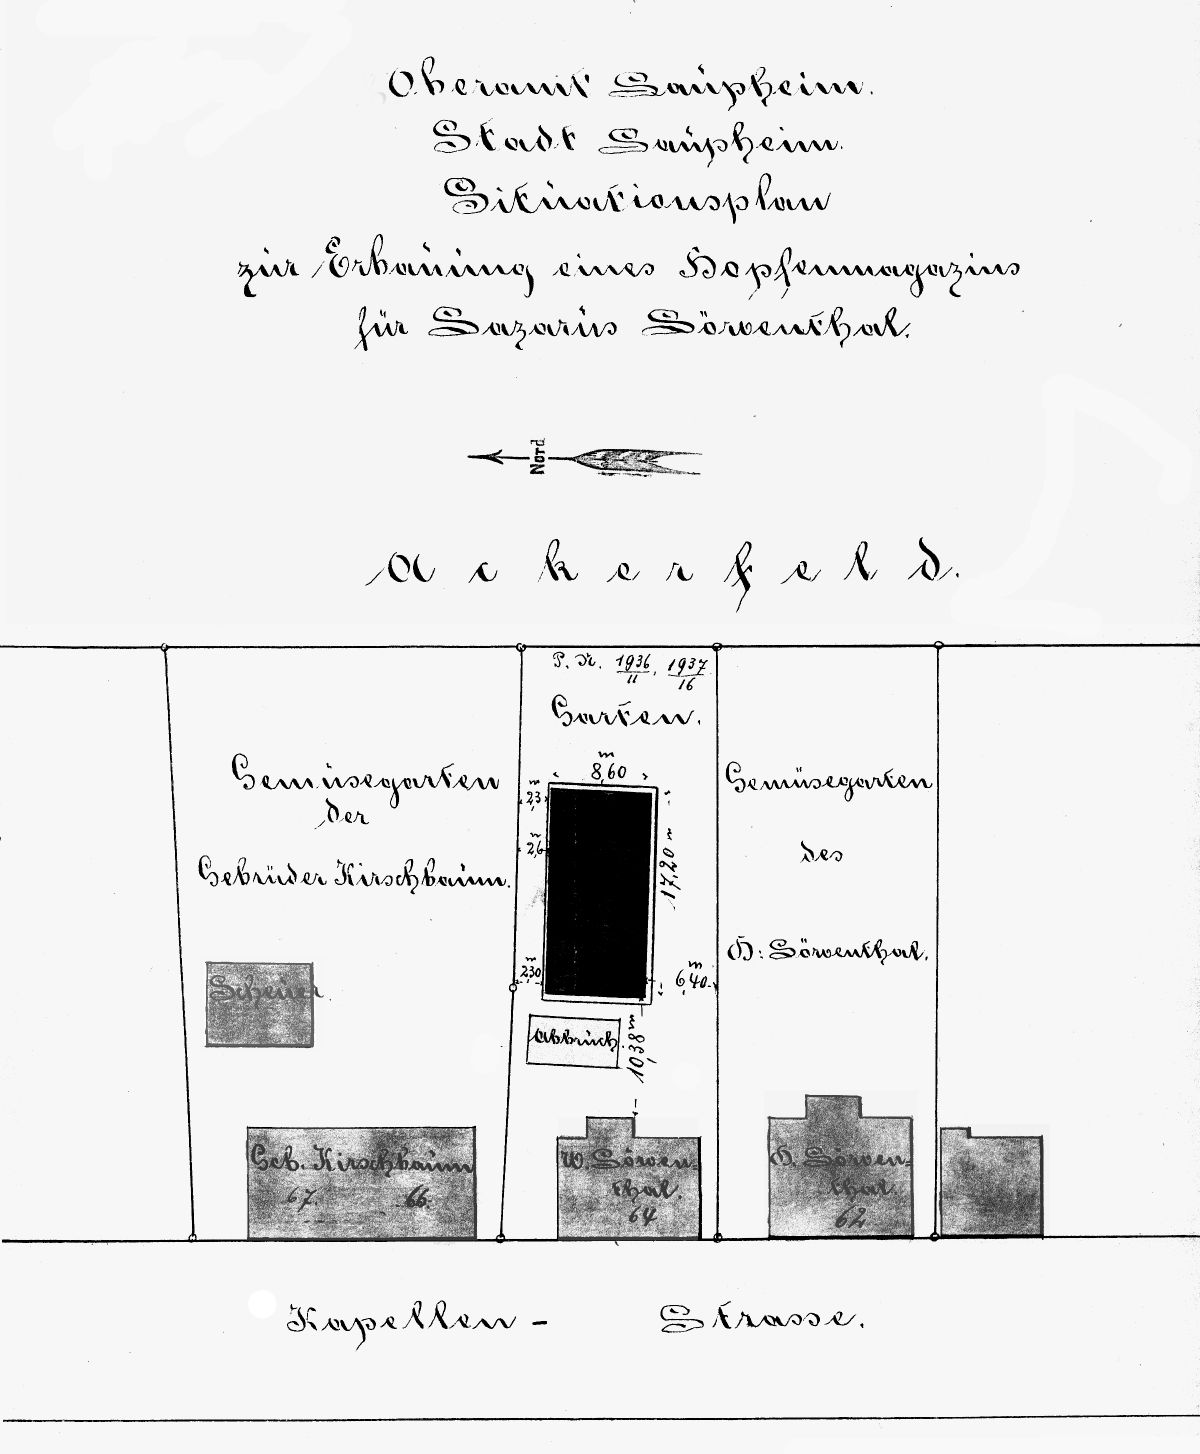 Oberamt Laupheim.
Stadt Laupheim.
Situationsplan
zur Erbauung eines Hopfenmagazins
für Lazarus Löwenthal.
Nord
Ackerfeld.
P. Nr. 1936/11, 1937/16
Garten.
m
8,60
Gemüsegarten
der
Gebrüder Kirschbaum.
m
2,3
m
2,6
17,20 m
m
2,30
m
6,40
Gemüsegarten
des
H: Löwenthal.
Scheuer.
Abbruch.
10,38 m
Geb. Kirschbaum
67. 66.
W. Löwen-
thal.
64
H. Löwen-
thal.
62
Kapellen - Strasse.